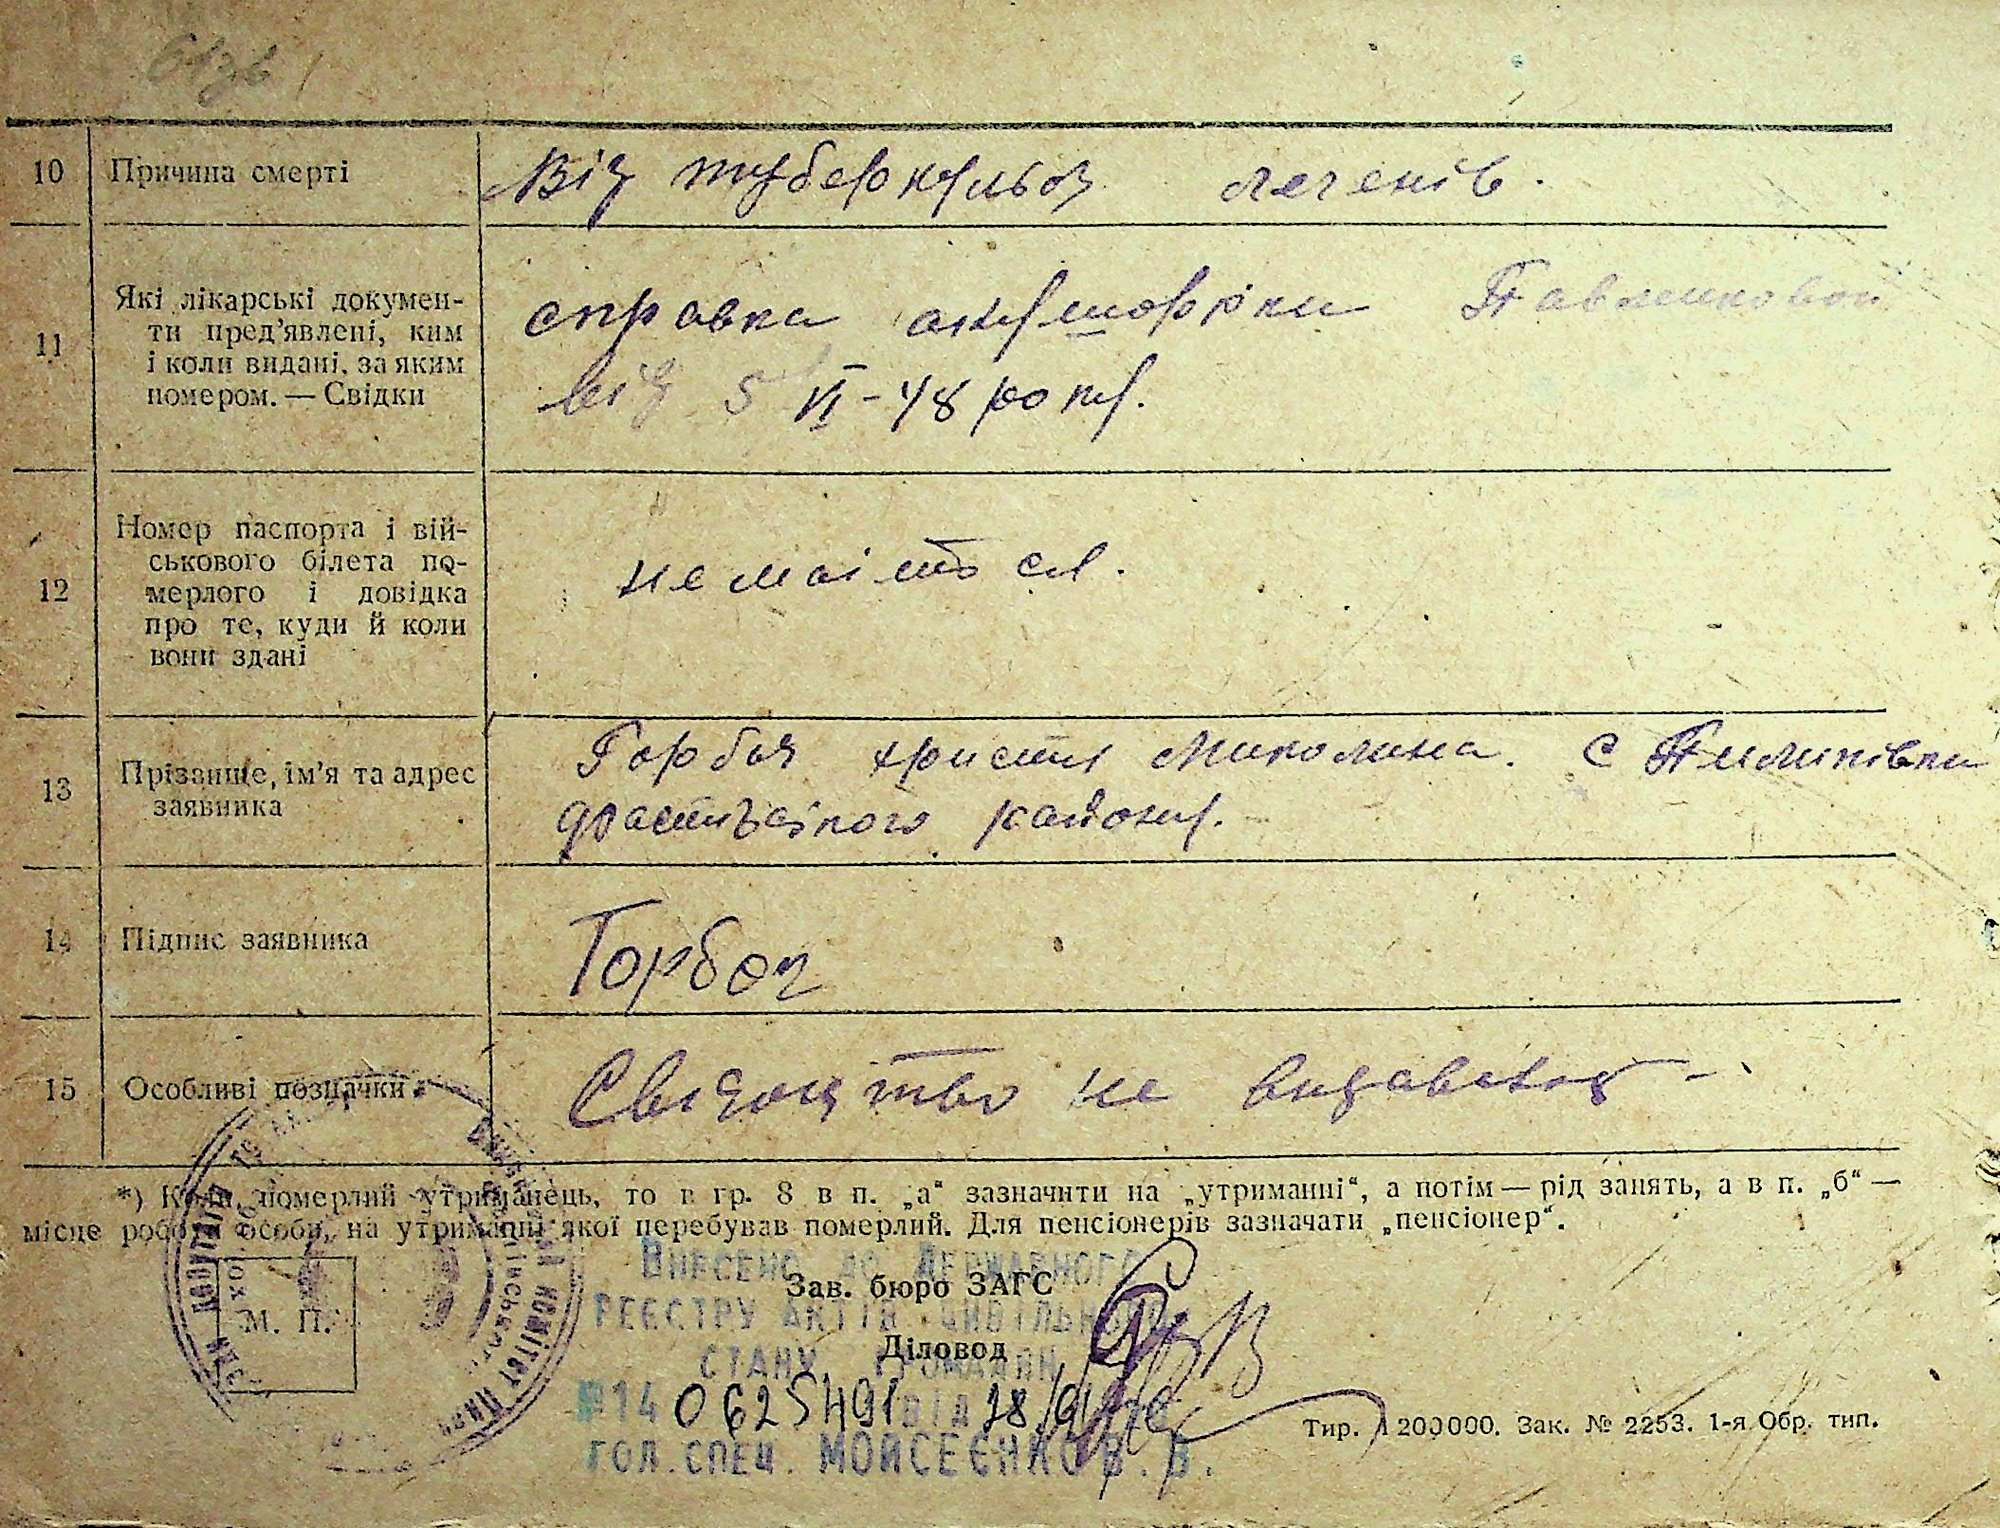 10 Причина смерті Від туберкульоз легенів.
11 Які лікарські докумен-
ти пред'явлені, ким
і коли видані, за яким
номером. — Свідки
справка акушорки Павленкової
від 5 VI-48 року.
12 Номер паспорта і вій-
ськового білета по-
мерлого і довідка
про те, куди й коли
вони здані
не маіться.
13 Прізвище, ім'я та адрес
заявника
Горбач христя Миколина. с Пилипівки
фастівського району.
14 Підпис заявника Горбач
15 Особливі позначки Свідоцтво не видавалось
*) Коли померлий утриманець, то в гр. 8 в п. „а“ зазначити на „утриманні“, а потім — рід занять, а в п. „б“ —
місце роботи особи, на утриманні якої перебував померлий. Для пенсіонерів зазначати „пенсіонер“.
Внесено до Державного
Зав. бюро ЗАГС
реєстру актів цивільного
М. П.
Діловод
стану громадян
№14 0625491 від
Тир. 1 200000. Зак. № 2253. 1-я Обр. тип.
гол. спец. Мойсеєнко В. В.